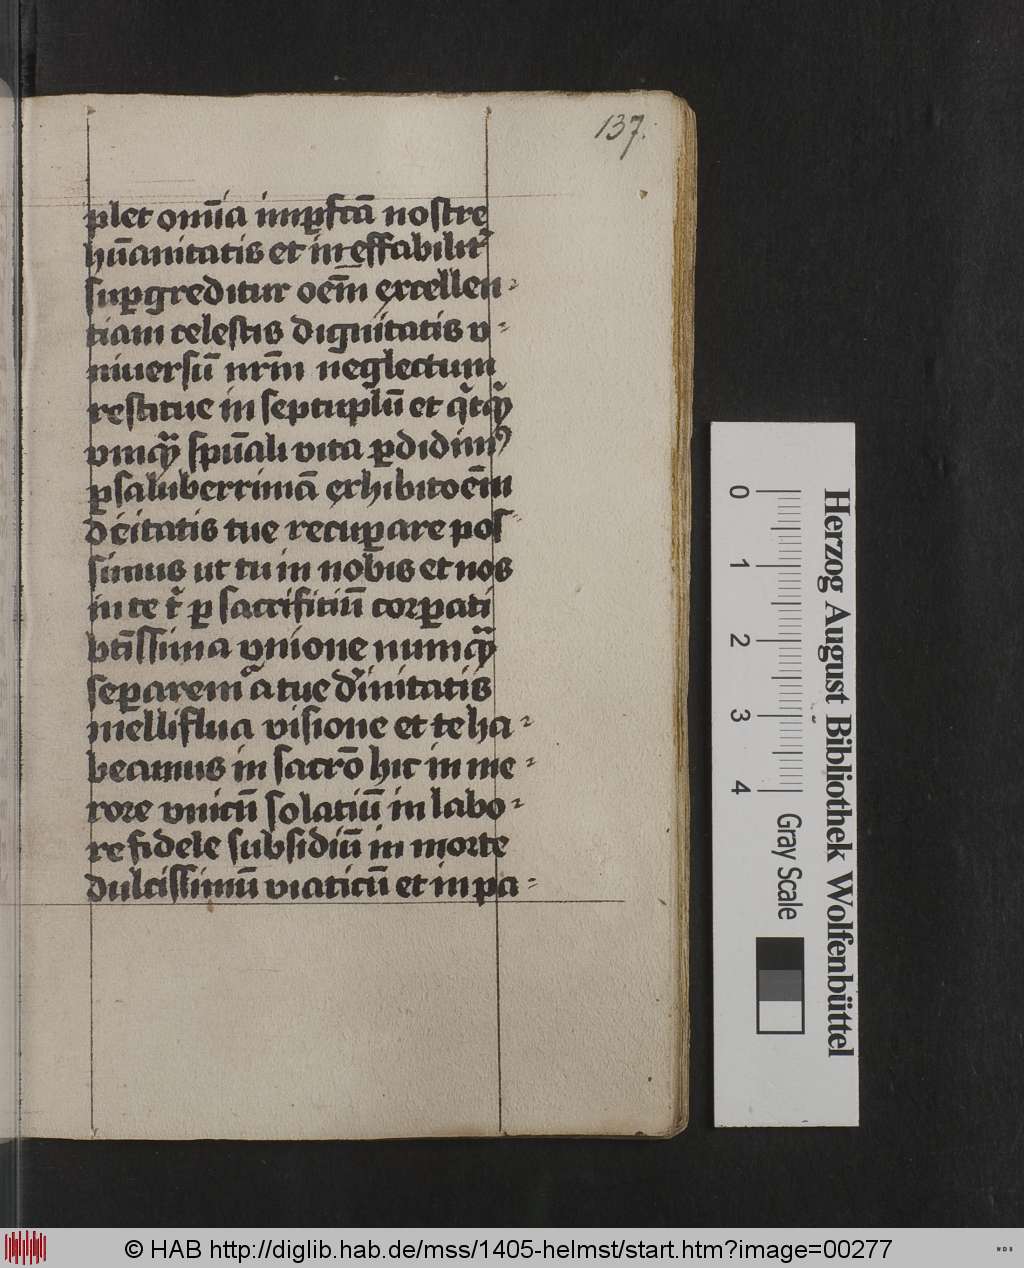 137.
plet om̄ia inꝑfcā nostre
hūanitatis et ineffabilitr̄
suꝑgreditur oem̄ excellen⸗
tiam celestis dignitatis v⸗
niuersū nrm̄ neglectum
restitue in septuplū et
spūali vita ꝑdidimꝰ
ꝑ saluberrimā exhibitoēm
deitatis tue recuꝑare pos
simus ut tu in nobis et nos
in te ꝑ sacrifitiū corꝑati
vnione
a tue
melliflua visione et te ha⸗
beamus in sacrō hic in me⸗
rore vnicū solatiū in labo⸗
re fidele subsidiū in morte
dulcissimū viaticū et in pa⸗
0
1
2
3
4
Gray Scale
Herzog August Bibliothek Wolfenbüttel
© HAB http://diglib.hab.de/mss/1405-helmst/start.htm?image=00277